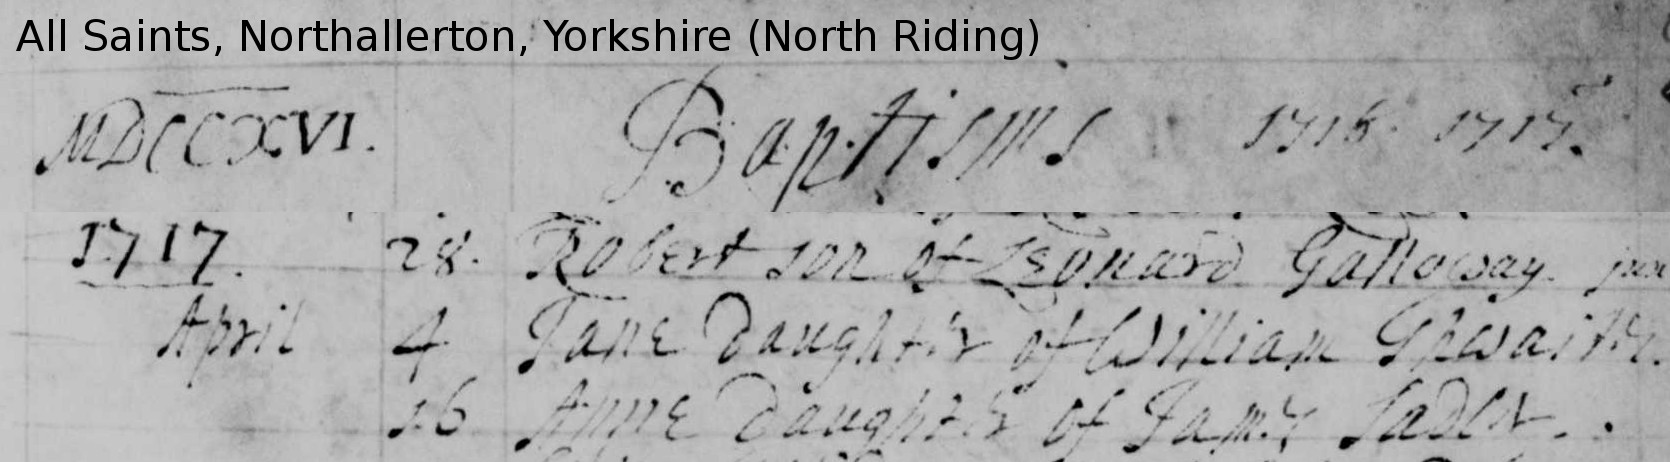 All Saints, Northallerton, Yorkshire (North Riding)
MDCCXVI. Baptisms 1716. 1717.
1717. 28. Robert son of Leonard Galloway. jun
April 4 Jane Daughter of William Thwaite.
16 Anne Daughter of James Sadler.